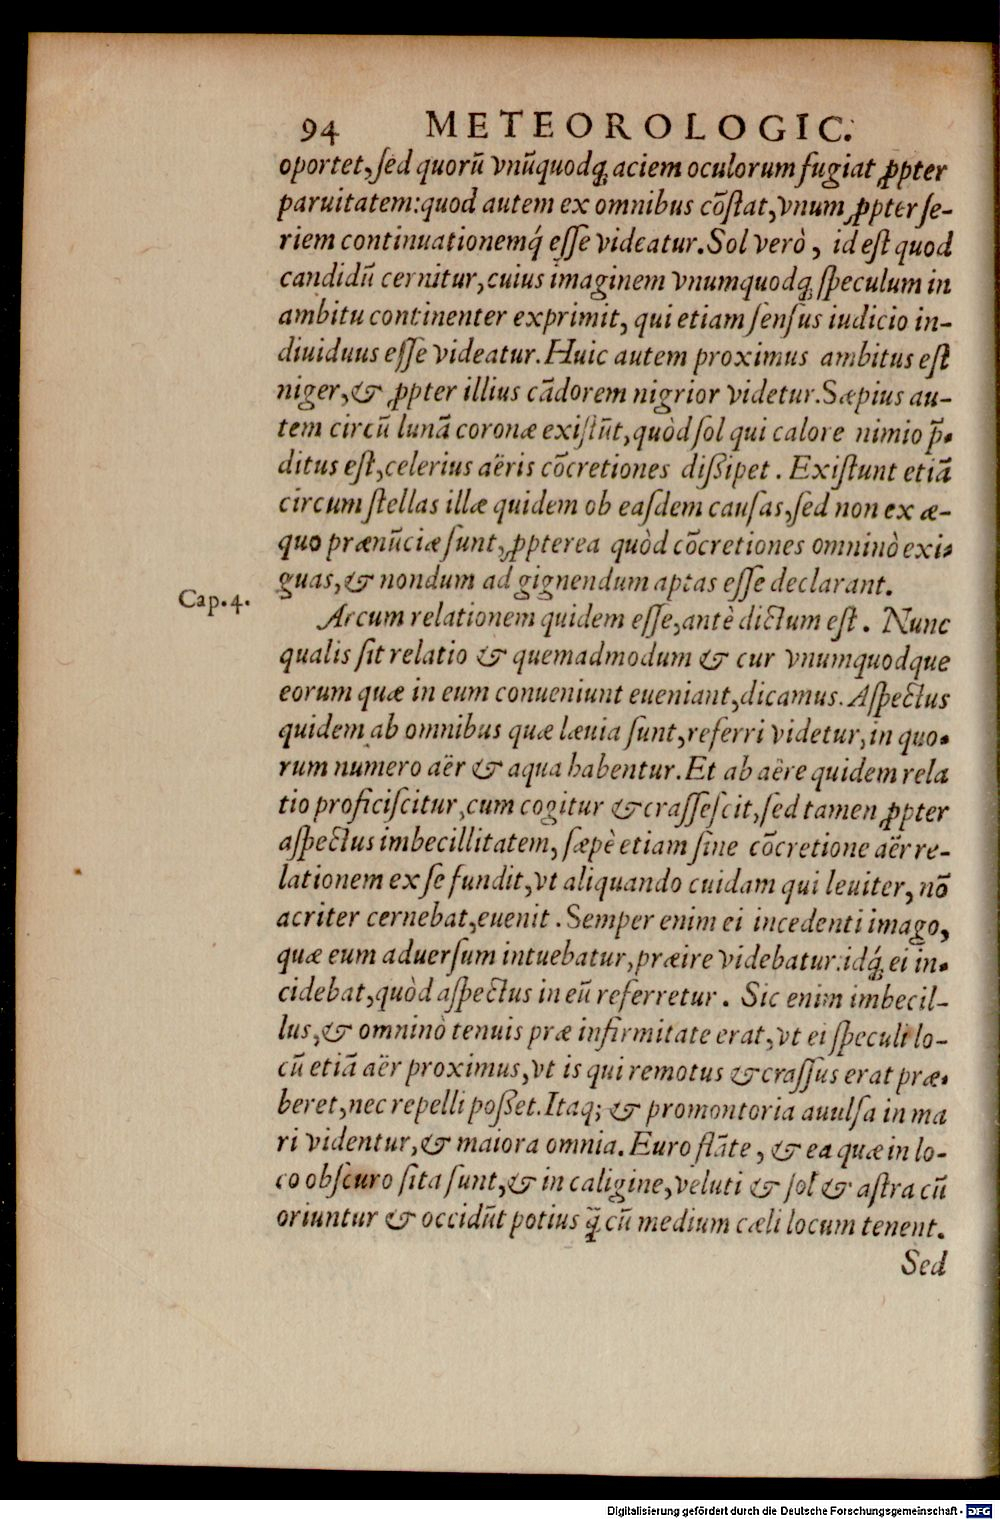 94 METEOROLOGIC.
oportet, ſed quorũ vnũquodq; aciem oculorum fugiat ꝓpter
paruitatem: quod autem ex omnibus cõſtat, vnum ꝓpter ſe-
riem continuationemq́; eſſe videatur. Sol verò, id eſt quod
candidũ cernitur, cuius imaginem vnumquodq; ſpeculum in
ambitu continenter exprimit, qui etiam ſenſus iudicio in-
diuiduus eſſe videatur. Huic autem proximus ambitus eſt
niger, & ꝓpter illius cãdorem nigrior videtur. Sæpius au-
tem circũ lunã coronæ exiſtũt, quòd ſol qui calore nimio p̃-
ditus eſt, celerius aëris cõcretiones dißipet. Exiſtunt etiã
circum ſtellas illæ quidem ob eaſdem cauſas, ſed non ex æ-
quo prænũciæ ſunt, ꝓpterea quòd cõcretiones omninò exi-
guas, & nondum ad gignendum aptas eſſe declarant.
Cap. 4.
Arcum relationem quidem eſſe, antè dictum eſt. Nunc
qualis ſit relatio & quemadmodum & cur vnumquodque
eorum quæ in eum conueniunt eueniant, dicamus. Aſpectus
quidem ab omnibus quæ læuia ſunt, referri videtur, in quo-
rum numero aër & aqua habentur. Et ab aëre quidem rela
tio proficiſcitur, cum cogitur & craſſeſcit, ſed tamen ꝓpter
aſpectus imbecillitatem, ſæpè etiam ſine cõcretione aër re-
lationem ex ſe fundit, vt aliquando cuidam qui leuiter, nõ
acriter cernebat, euenit. Semper enim ei incedenti imago,
quæ eum aduerſum intuebatur, præire videbatur: idq́; ei in-
cidebat, quòd aſpectus in eũ referretur. Sic enim imbecil-
lus, & omninò tenuis præ infirmitate erat, vt ei ſpeculi lo-
cũ etiã aër proximus, vt is qui remotus & craſſus erat præ-
beret, nec repelli poßet. Itaq; & promontoria auulſa in ma
ri videntur, & maiora omnia. Euro flãte, & ea quæ in lo-
co obſcuro ſita ſunt, & in caligine, veluti & ſol & aſtra cũ
oriuntur & occidũt potius q̃ cũ medium cæli locum tenent.
Sed
Digitalisierung gefördert durch die Deutsche Forschungsgemeinschaft - DFG